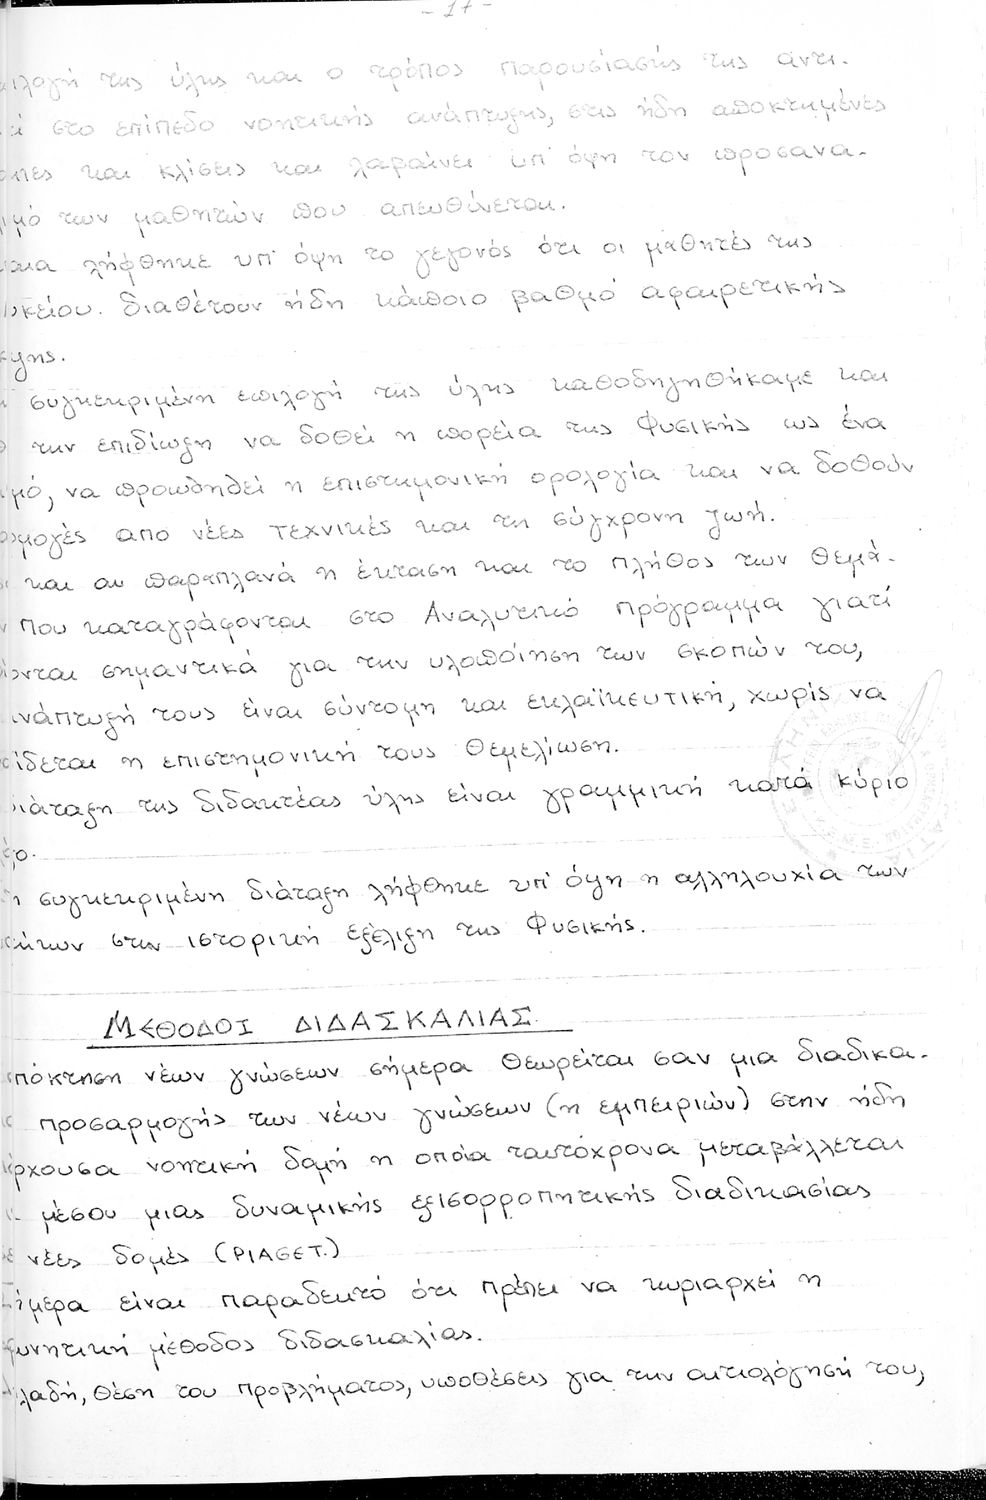 - 17 -
ιλογή της ύλης και ο τρόπος παρουσίασής της αντι-
ί στο επίπεδο νοητικής ανάπτυξης, στις ήδη αποκτημένες
και κλίσεις και λαβαίνει υπ' όψη τον προσανα-
μό των μαθητών που απευθύνεται.
λήφθηκε υπ' όψη το γεγονός ότι οι μαθητές της
υκείου. διαθέτουν ήδη κάποιο βαθμό αφαιρετικής
ψης.
συγκεκριμένη επιλογή της ύλης καθοδηγηθήκαμε και
την επιδίωξη να δοθεί η πορεία της Φυσικής ως ένα
μό, να προωθηθεί η επιστημονική ορολογία και να δοθούν
ρμογές απο νέες τεχνικές και τη σύγχρονη ζωή.
και αν παραπλανά η έκταση και το πλήθος των θεμά-
ν που καταγράφονται στο Αναλυτικό πρόγραμμα γιατί
ίονται σημαντικά για την υλοποίηση των σκοπών του,
ανάπτυξή τους είναι σύντομη και εκλαϊκευτική, χωρίς να
ίδεται η επιστημονική τους θεμελίωση.
διάταξη της διδακτέας ύλης είναι γραμμική κατά κύριο
γο.
η συγκεκριμένη διάταξη λήφθηκε υπ' όψη η αλληλουχία των
στην ιστορική εξέλιξη της Φυσικής.
ΜΕΘΟΔΟΙ ΔΙΔΑΣΚΑΛΙΑΣ
απόκτηση νέων γνώσεων σήμερα θεωρείται σαν μια διαδικα-
προσαρμογής των νέων γνώσεων (η εμπειριών) στην ήδη
άρχουσα νοητική δομή η οποία ταυτόχρονα μεταβάλλεται
μέσου μιας δυναμικής εξισορροπητικής διαδικασίας
νέες δομές (PIAGET.)
Σήμερα είναι παραδεκτό ότι πρέπει να κυριαρχεί η
ρευνητική μέθοδος διδασκαλίας.
λαδή, θέση του προβλήματος, υποθέσεις για την αιτιολόγησή του,